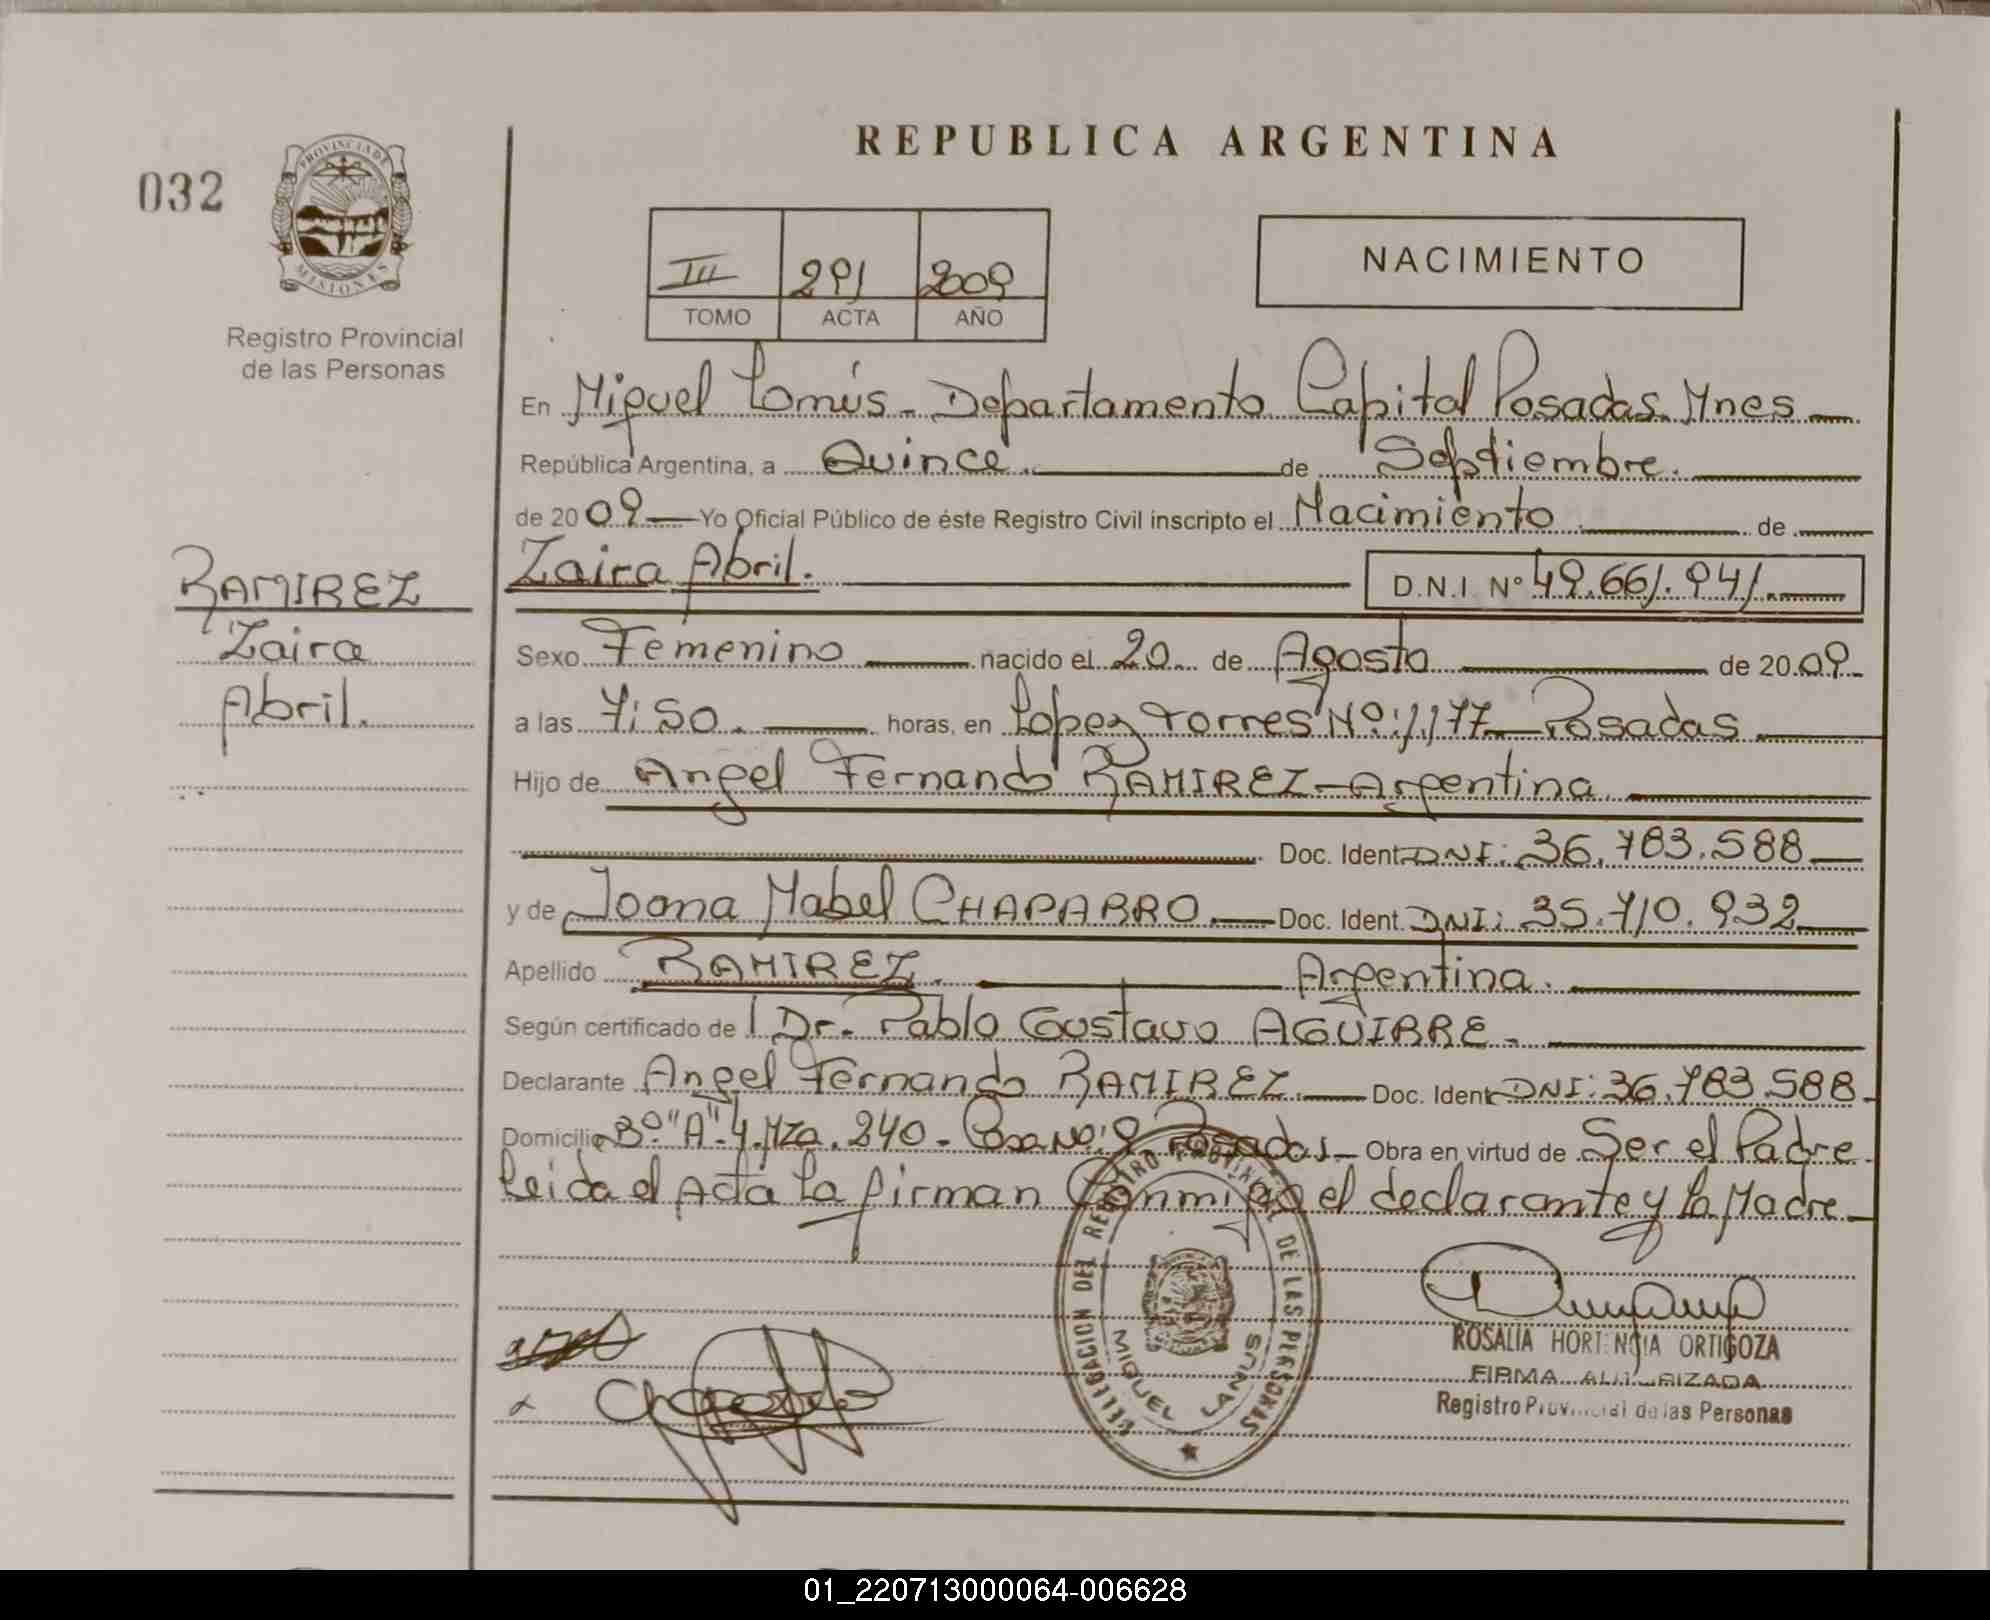 REPUBLICA ARGENTINA
032
PROVINCIA DE
MISIONES
Registro Provincial
de las Personas
III 291 2009
TOMO ACTA AÑO
NACIMIENTO
En Miguel Lanús - Departamento Capital Posadas Mnes
República Argentina, a Quince de Septiembre.
de 2009 Yo Oficial Público de éste Registro Civil inscripto el Nacimiento de
Zaira Abril. D.N.I Nº 49.661.941.
RAMIREZ
Zaira
Abril.
Sexo Femenino nacido el 20 de Agosto de 2009
a las 7:50. horas, en Lopez Torres Nº: 1.177 Posadas
Hijo de Angel Fernando RAMIREZ - Argentina
Doc. Ident. DNI: 36.783.588
y de Joana Mabel CHAPARRO. Doc. Ident. DNI: 35.710.932
Apellido RAMIREZ. Argentina.
Según certificado de Dr. Pablo Gustavo AGUIRRE.
Declarante Angel Fernando RAMIREZ. Doc. Ident. DNI: 36.783.588
Domicilio Bº "A" 4. Mza. 240 - Casa Nº: 9 Posadas Obra en virtud de Ser el Padre
Leida el Acta la firman Conmigo el declarante y la Madre
DELEGACION DEL REGISTRO PROVINCIAL DE LAS PERSONAS
MIGUEL LANUS
ROSALIA HORTENSIA ORTIGOZA
FIRMA AUTORIZADA
Registro Provincial de las Personas
01_220713000064-006628